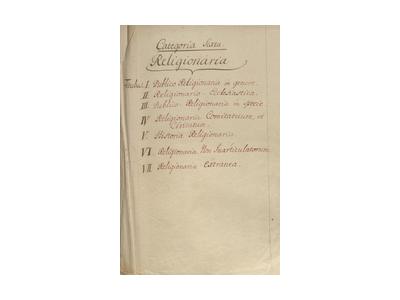 Categoria Sexta
Religionaria
I. Publico Religionaria in genere.
II. Religionaria Ecclesiastica.
III. Publico Religionaria in specie
IV. Religionaria Comitatuum, et
Civitatum.
V. Historia Religionaria.
VI. Religionaria Non Inarticulatorum
VII. Religionaria Extranea.